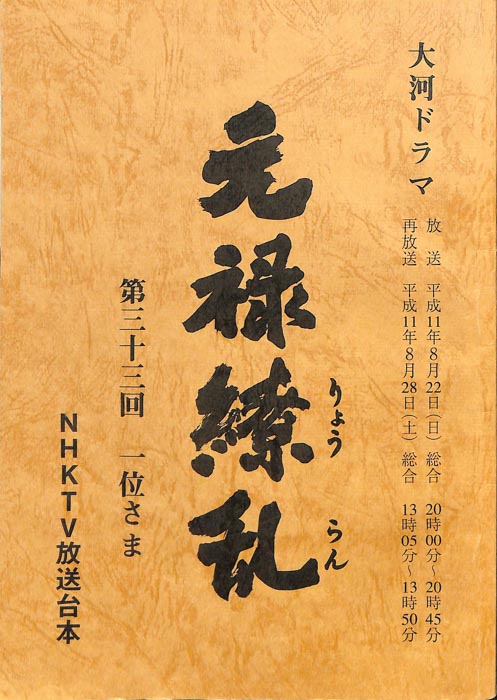 大河ドラマ
放　送　平成11年8月22日（日）　総合　20時00分～20時45分
再放送　平成11年8月28日（土）　総合　13時05分～13時50分
元禄繚乱
りょう　らん
第三十三回　一位さま
NHKTV放送台本